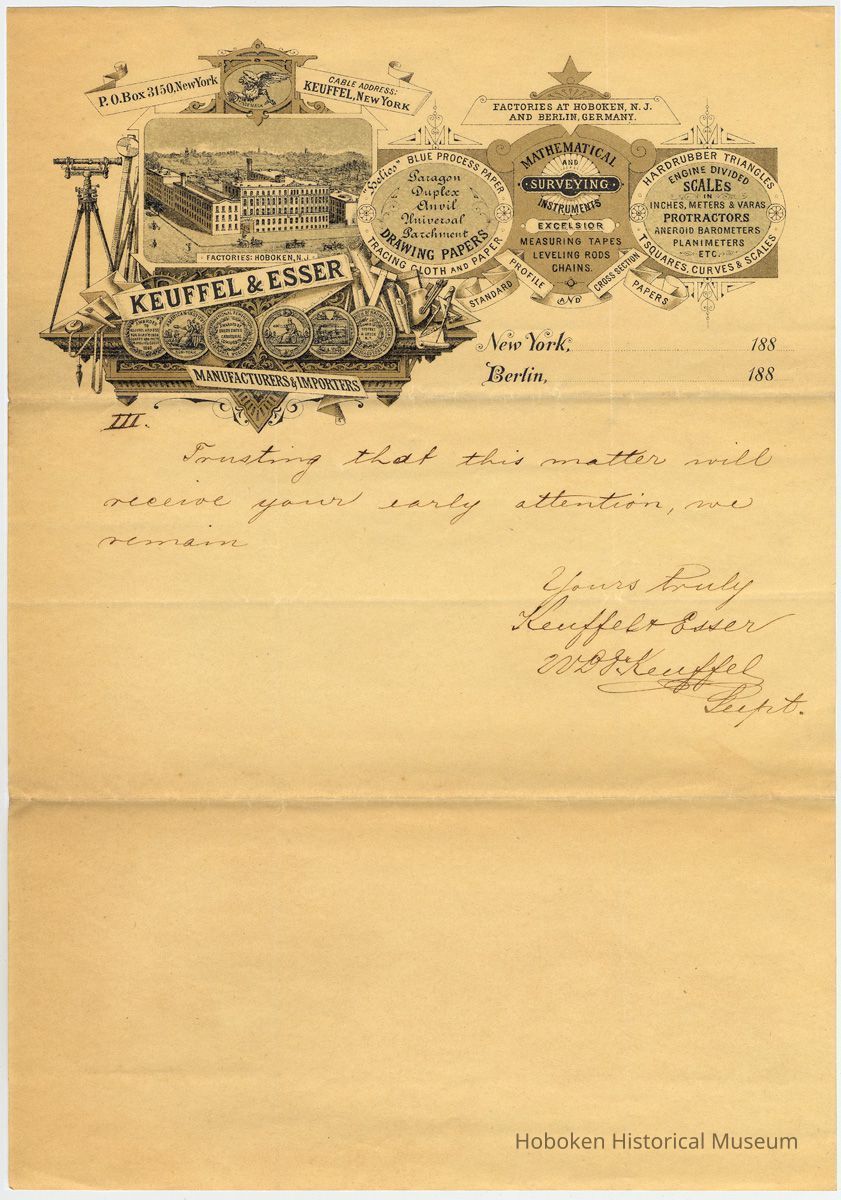 P.O.Box 3150, New York
CABLE ADDRESS:
KEUFFEL, NEW YORK
FACTORIES: HOBOKEN, N.J.
KEUFFEL & ESSER
MANUFACTURERS & IMPORTERS
"Helios" BLUE PROCESS PAPER
Paragon
Duplex
Anvil
Universal
Parchment
DRAWING PAPERS
TRACING CLOTH AND PAPER
FACTORIES AT HOBOKEN, N. J.
AND BERLIN, GERMANY.
MATHEMATICAL
AND
SURVEYING
INSTRUMENTS
EXCELSIOR
MEASURING TAPES
LEVELING RODS
CHAINS.
HARDRUBBER TRIANGLES
ENGINE DIVIDED
SCALES
IN
INCHES, METERS & VARAS
PROTRACTORS
ANEROID BAROMETERS
PLANIMETERS
ETC.
T SQUARES, CURVES & SCALES
STANDARD PROFILE AND CROSS SECTION PAPERS
New York, 188
Berlin, 188
III.
Trusting that this matter will
receive your early attention, we
remain
Yours truly
Keuffel & Esser
Keuffel
Supt.
Hoboken Historical Museum